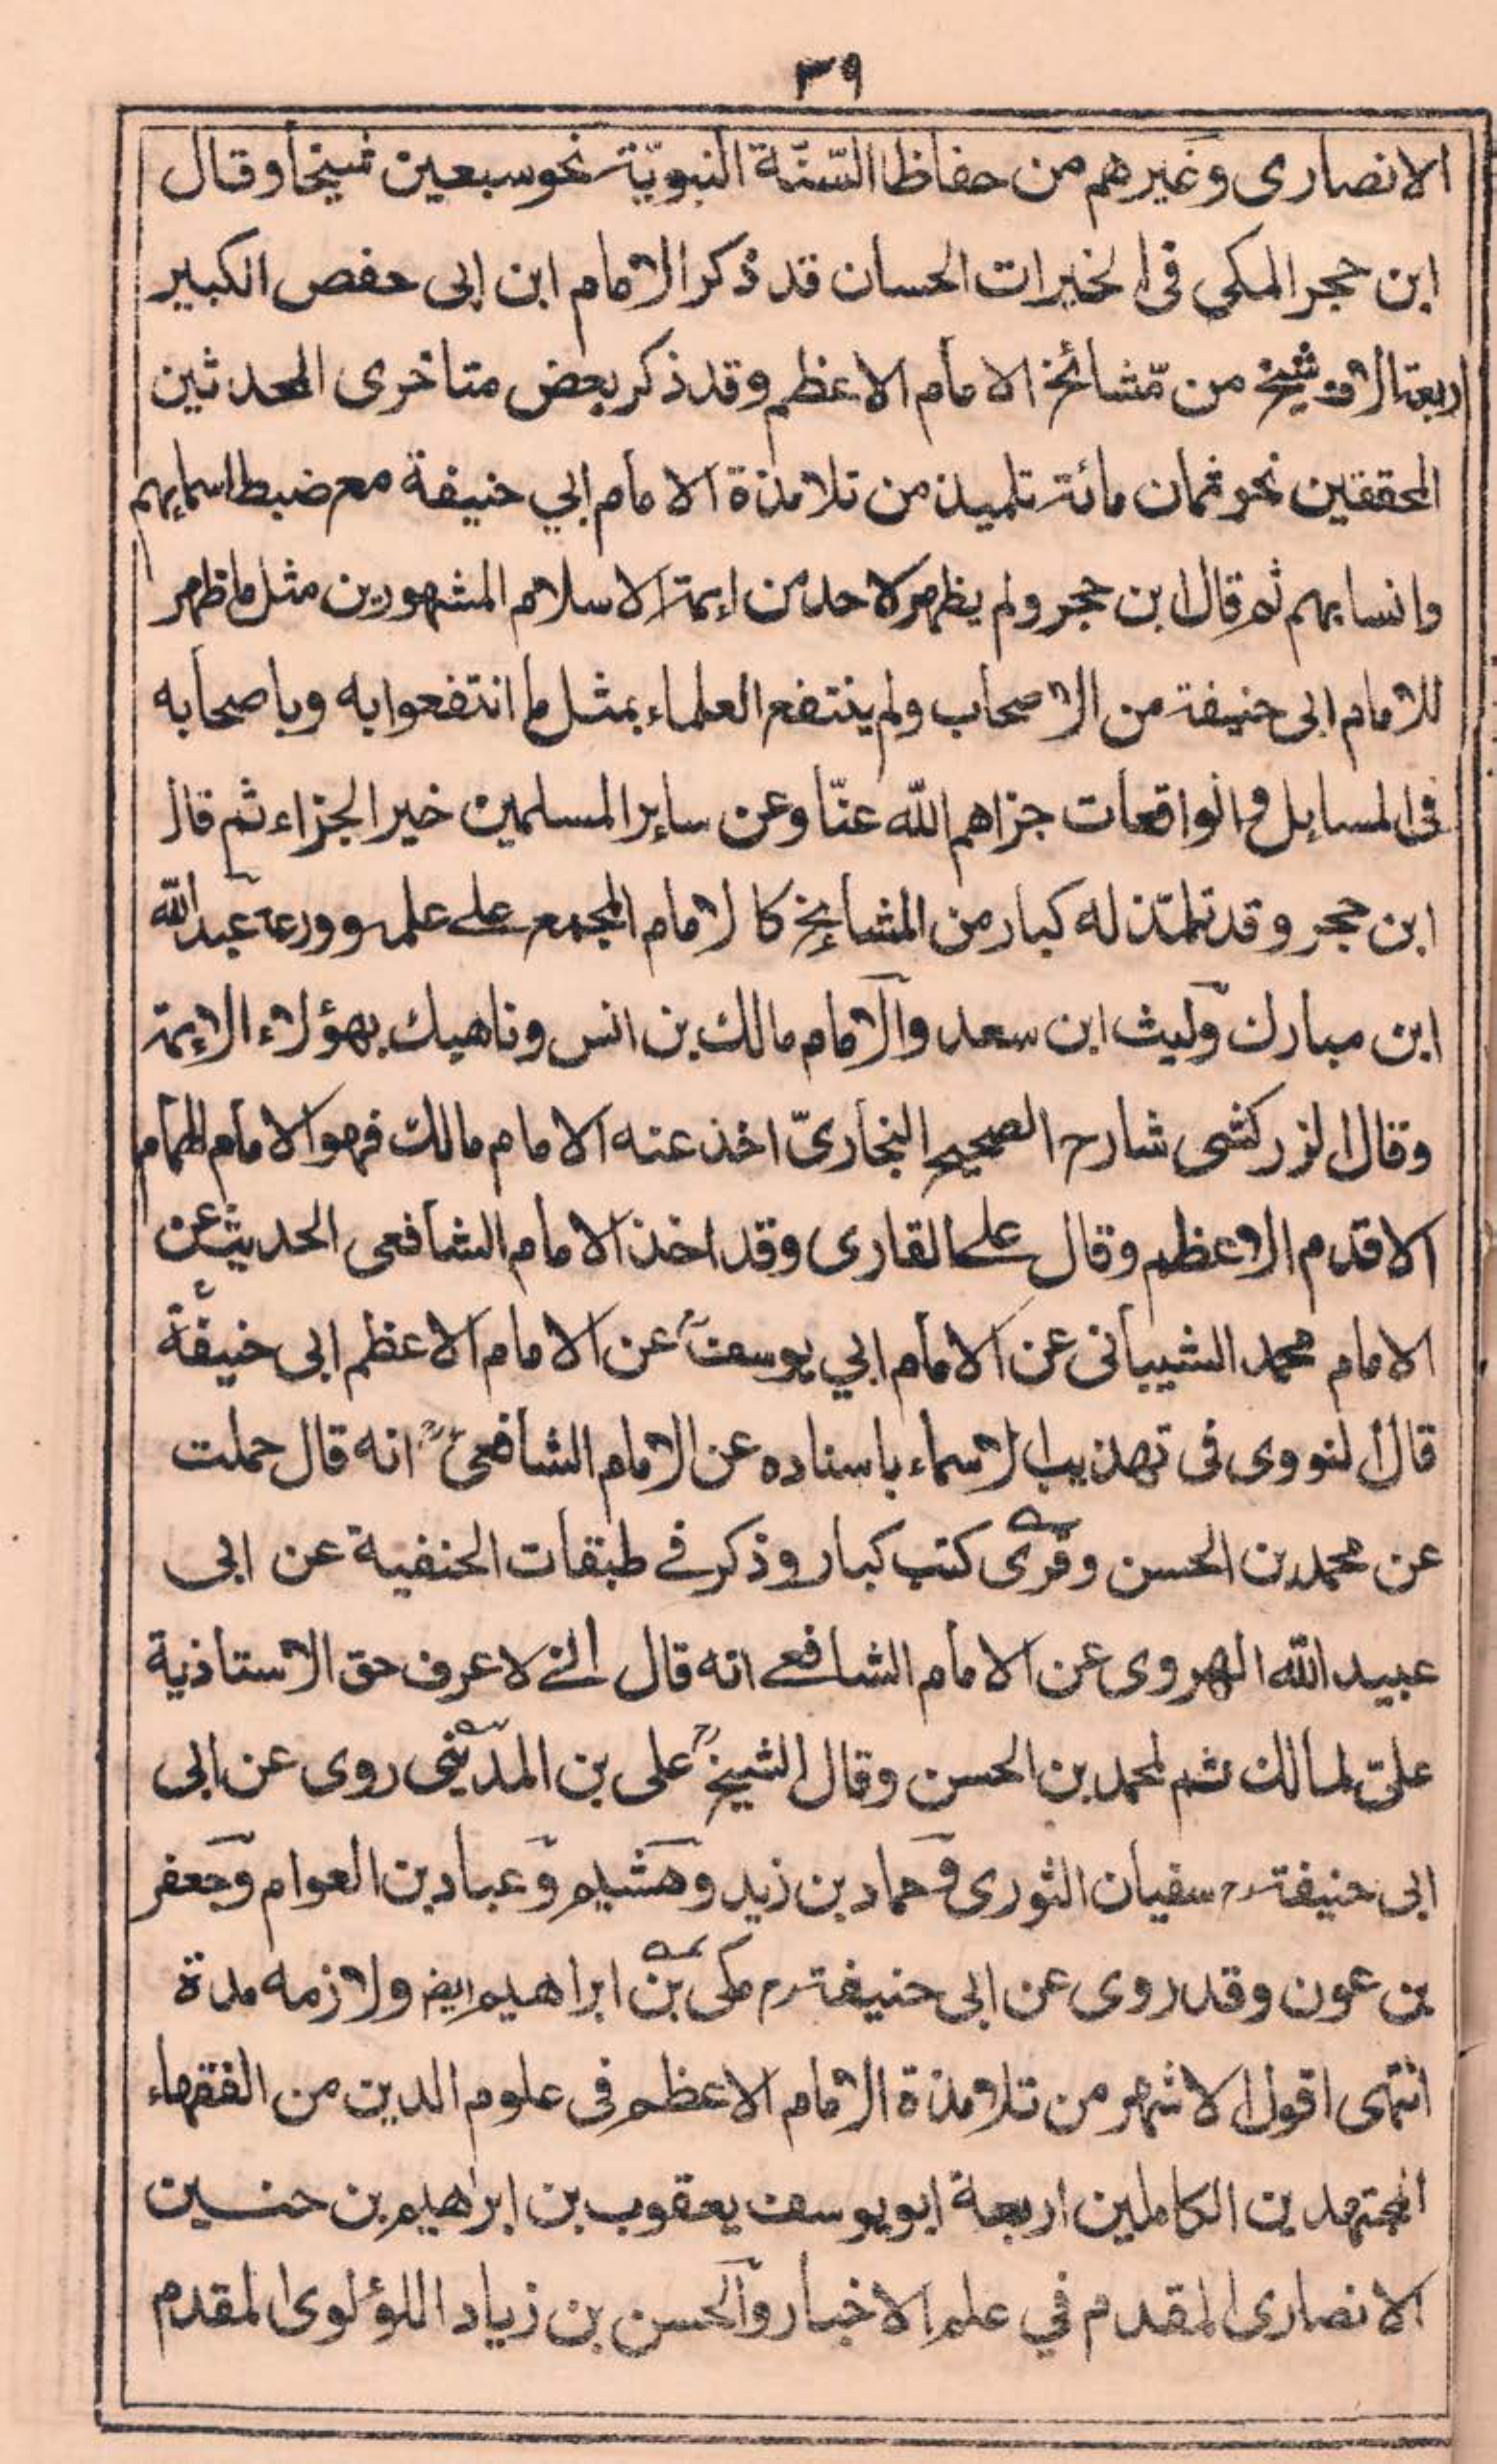 ٣٩
الانصارى وغيرهم من حفاظ السّنّة النبويّة نحو سبعين شيخا وقال
ابن حجر المكى فى الخيرات الحسان قد ذكر الامام ابن ابى حفص الكبير
اربعة الاف شيخ من مشائخ الامام الاعظم وقد ذكر بعض متاخرى المحدثين
المحققين نحو ثمان مائة تلميذ من تلامذة الامام ابي حنيفة مع ضبط اسمايهم
وانسابهم ثم قال ابن حجر ولم يظهر لاحد من ايمة الاسلام المشهورين مثل ما ظهر
للامام ابى حنيفة من الاصحاب ولم ينتفع العلماء بمثل ما انتفعوا به وباصحابه
فى المسايل والواقعات جزاهم الله عنّا وعن ساير المسلمين خير الجزاء ثم قال
ابن حجر وقد تلمّذ له كبار من المشايخ كالامام المجمع على علمه وورعه عبد الله
ابن مبارك وليث ابن سعد والامام مالك بن انس وناهيك بهؤلاء الايمة
وقال الزركشى شارح الصحيح البخارىّ اخذ عنه الامام مالك فهو الامام الهمام
الاقدم الاعظم وقال على القارى وقد اخذ الامام الشافعى الحديث عن
الامام محمد الشيبانى عن الامام ابي يوسف عن الامام الاعظم ابى حنيفة
قال النووى فى تهذيب الاسماء باسناده عن الامام الشافعى انه قال حملت
عن محمد بن الحسن وقرى كتب كبار وذكر فے طبقات الحنفية عن ابى
عبيد الله الهروى عن الامام الشافعے انه قال انے لاعرف حق الاستاذية
علىّ لمالك ثم لمحمد بن الحسن وقال الشيخ على بن المدينى روى عن ابى
ابى حنيفة رح سفيان الثورى وحماد بن زيد وهشيم وعباد بن العوام وجعفر
بن عون وقد روى عن ابى حنيفة رح مكى بن ابراهيم ايض ولازمه مدة
انتهى اقول الاشهر من تلامذة الامام الاعظم فى علوم الدين من الفقهاء
المجتهدين الكاملين اربعة ابو يوسف يعقوب بن ابراهيم بن حنسين
الانصارى المقدم في علم الاخبار والحسن بن زياد اللؤلوى المقدم